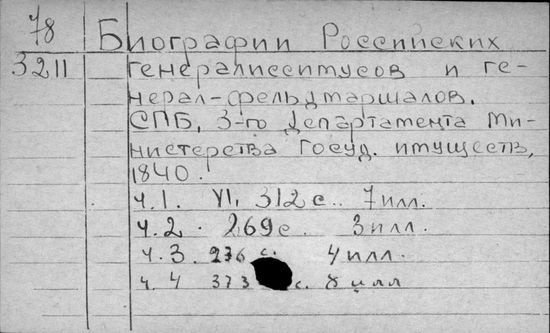 78
Биографии Российских
3211 генералисситусов и ге-
нерал-фельдмаршалов.
СПБ, 3-го Департамента Ми-
нистерства Госуд. имуществ,
1840.
ч. 1. VI, 312 с. 7 илл.
ч. 2. 269 с. 3 илл.
ч. 3. 276 с. 4 илл.
ч. 4 373 с. 8 илл